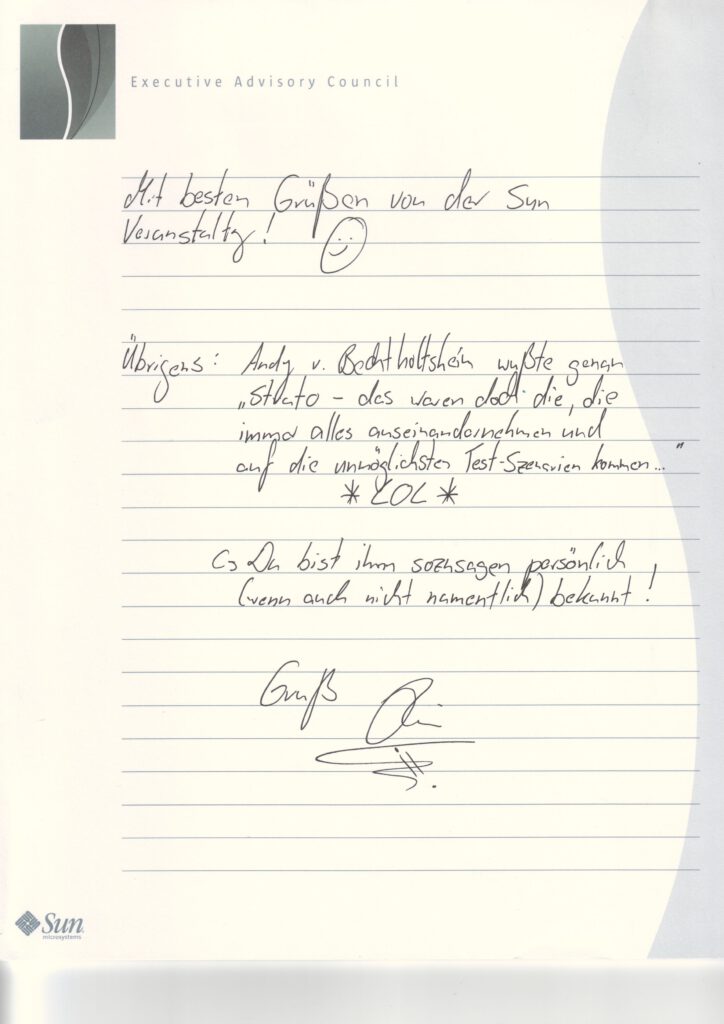 Executive Advisory Council
Mit besten Grüßen von der Sun
Veranstaltg!
Übrigens: Andy v. Bechtholtshein wußte genau
„Strato – das waren doch die, die
immer alles auseinandernehmen und
auf die unmöglichsten Test-Szenarien kommen..."
* LOL *
Du bist ihm sozusagen persönlich
(wenn auch nicht namentlich) bekannt!
Gruß
Sun
microsystems